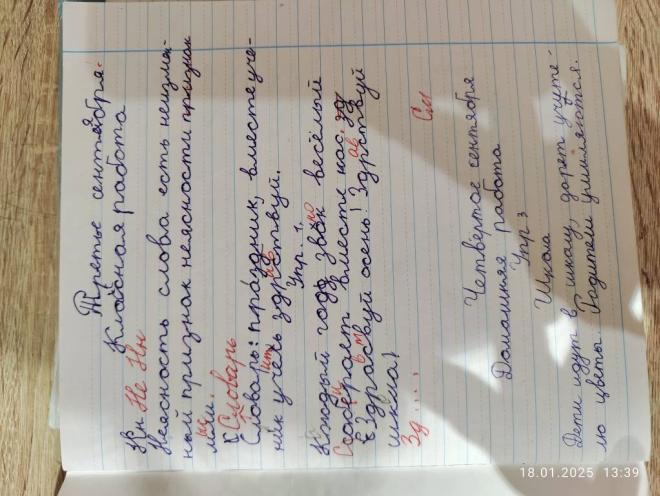 Третье сентября.
Классная работа
Нн Не Нн
Неясность слова есть неизмен-
ный признак неясности признак
мысли.
Словарь
Словарь: праздник, вместе, уче-
ник, учень, здраствуй.
Упр. 1.
Каждый год звок весёлый
Сооберает вместе нас.
Здраствуй осень! Здраствуй
школа!
Зд....
См
Четвертое сентября
Домашняя работа
Упр 3
Школа
Дети идут в школу, дарет учуте-
лю цветы. Родители умиляются.
18.01.2025 13:39